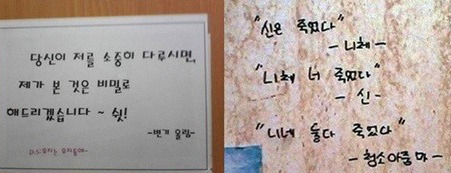 당신이 저를 소중히 다루시면,
제가 본 것은 비밀로
해드리겠습니다 ~ 쉿!
-변기 올림-
"신은 죽었다"
- 니체 -
"니체 너 죽었다"
- 신 -
"니네 둘다 죽었다"
- 청소아줌마 -